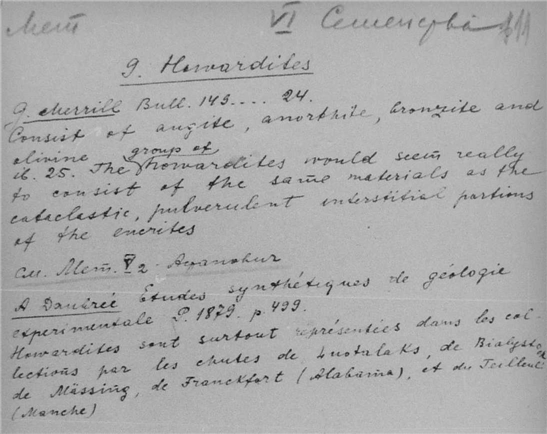 Мет VI Семенера
9. Howardites
G. Merrill Bull. 149.... 24.
Consist of augite, anorthite, bronzite and
olivine
ib. 25. The group of howardites would seem really
to consist of the same materials as the
cataclastic, pulverulent interstitial portions
of the eucrites
см. Мет. V2
A Daubrée Études synthétiques de géologie
experimentale P. 1879. p. 499.
Howardites sont surtout représentées dans les col-
lections par les chutes de Luotalaks, de Bialystok
de Mässing, de Franckfort (Alabama), et du Teilleul
(Manche)